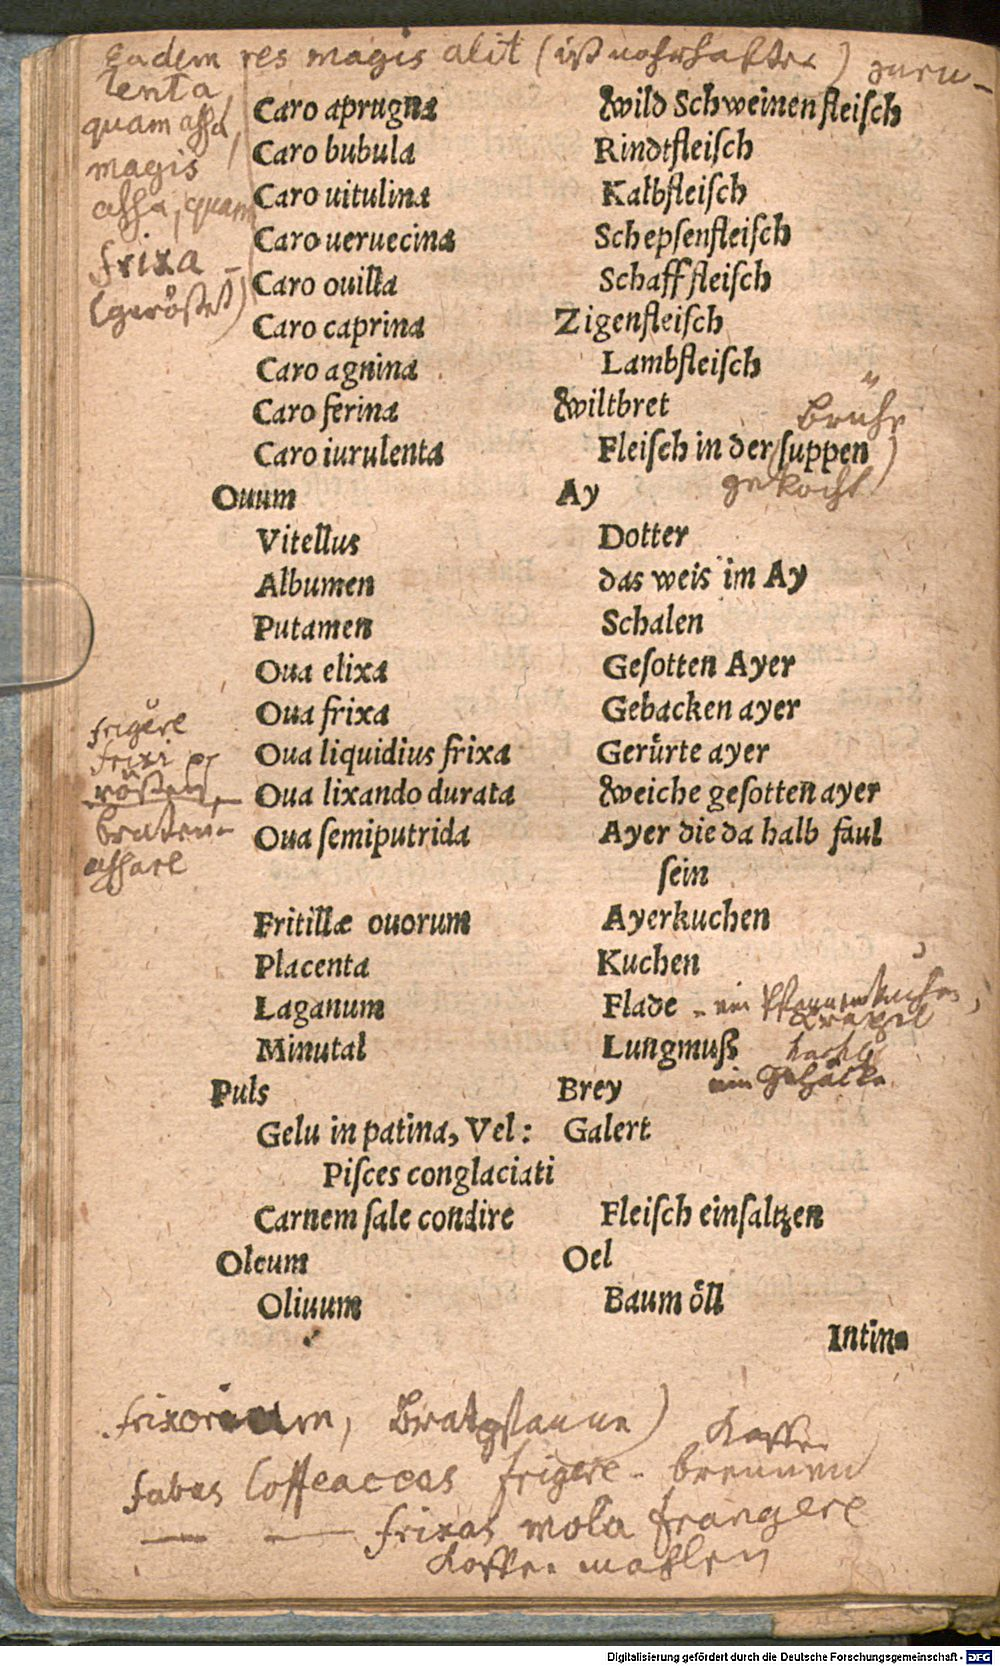 Eadem res magis alit (ist nahrhafter) juru-
lenta,
quam assa,
magis
assa, quam
frixa -
(geröstet)
Caro aprugna Wild Schweinen fleiſch
Caro bubula Rindtfleiſch
Caro uitulina Kalbfleiſch
Caro ueruecina Schepſenfleiſch
Caro ouilla Schaff fleiſch
Caro caprina Zigenfleiſch
Caro agnina Lambfleiſch
Caro ferina Wiltbret
Brühe
Caro iurulenta Fleiſch in der (ſuppen)
gekocht
Ouum Ay
Vitellus Dotter
Albumen das weis im Ay
Putamen Schalen
Oua elixa Geſotten Ayer
Oua frixa Gebacken ayer
Oua liquidius frixa Gerürte ayer
Oua lixando durata Weiche geſotten ayer
Oua ſemiputrida Ayer die da halb faul
ſein
frigĕre
frixi
rösten,
braten -
assare
Fritillæ ouorum Ayerkuchen
Placenta Kuchen
Laganum Flade - ein Pfannenkuchen,
Kräpel
Minutal Lungmuß
ein Gehäcke
Puls Brey
Gelu in patina, Vel: Galert
Piſces conglaciati
Carnem ſale condire Fleiſch einſaltzen
Oleum Oel
Oliuum Baum öll
Intin-
frixorium, Bratpfanne)
Koffee
fabas Coffeaceas frigere - brennen
— — frixas mola frangere
Koffee mahlen
Digitalisierung gefördert durch die Deutsche Forschungsgemeinschaft - DFG